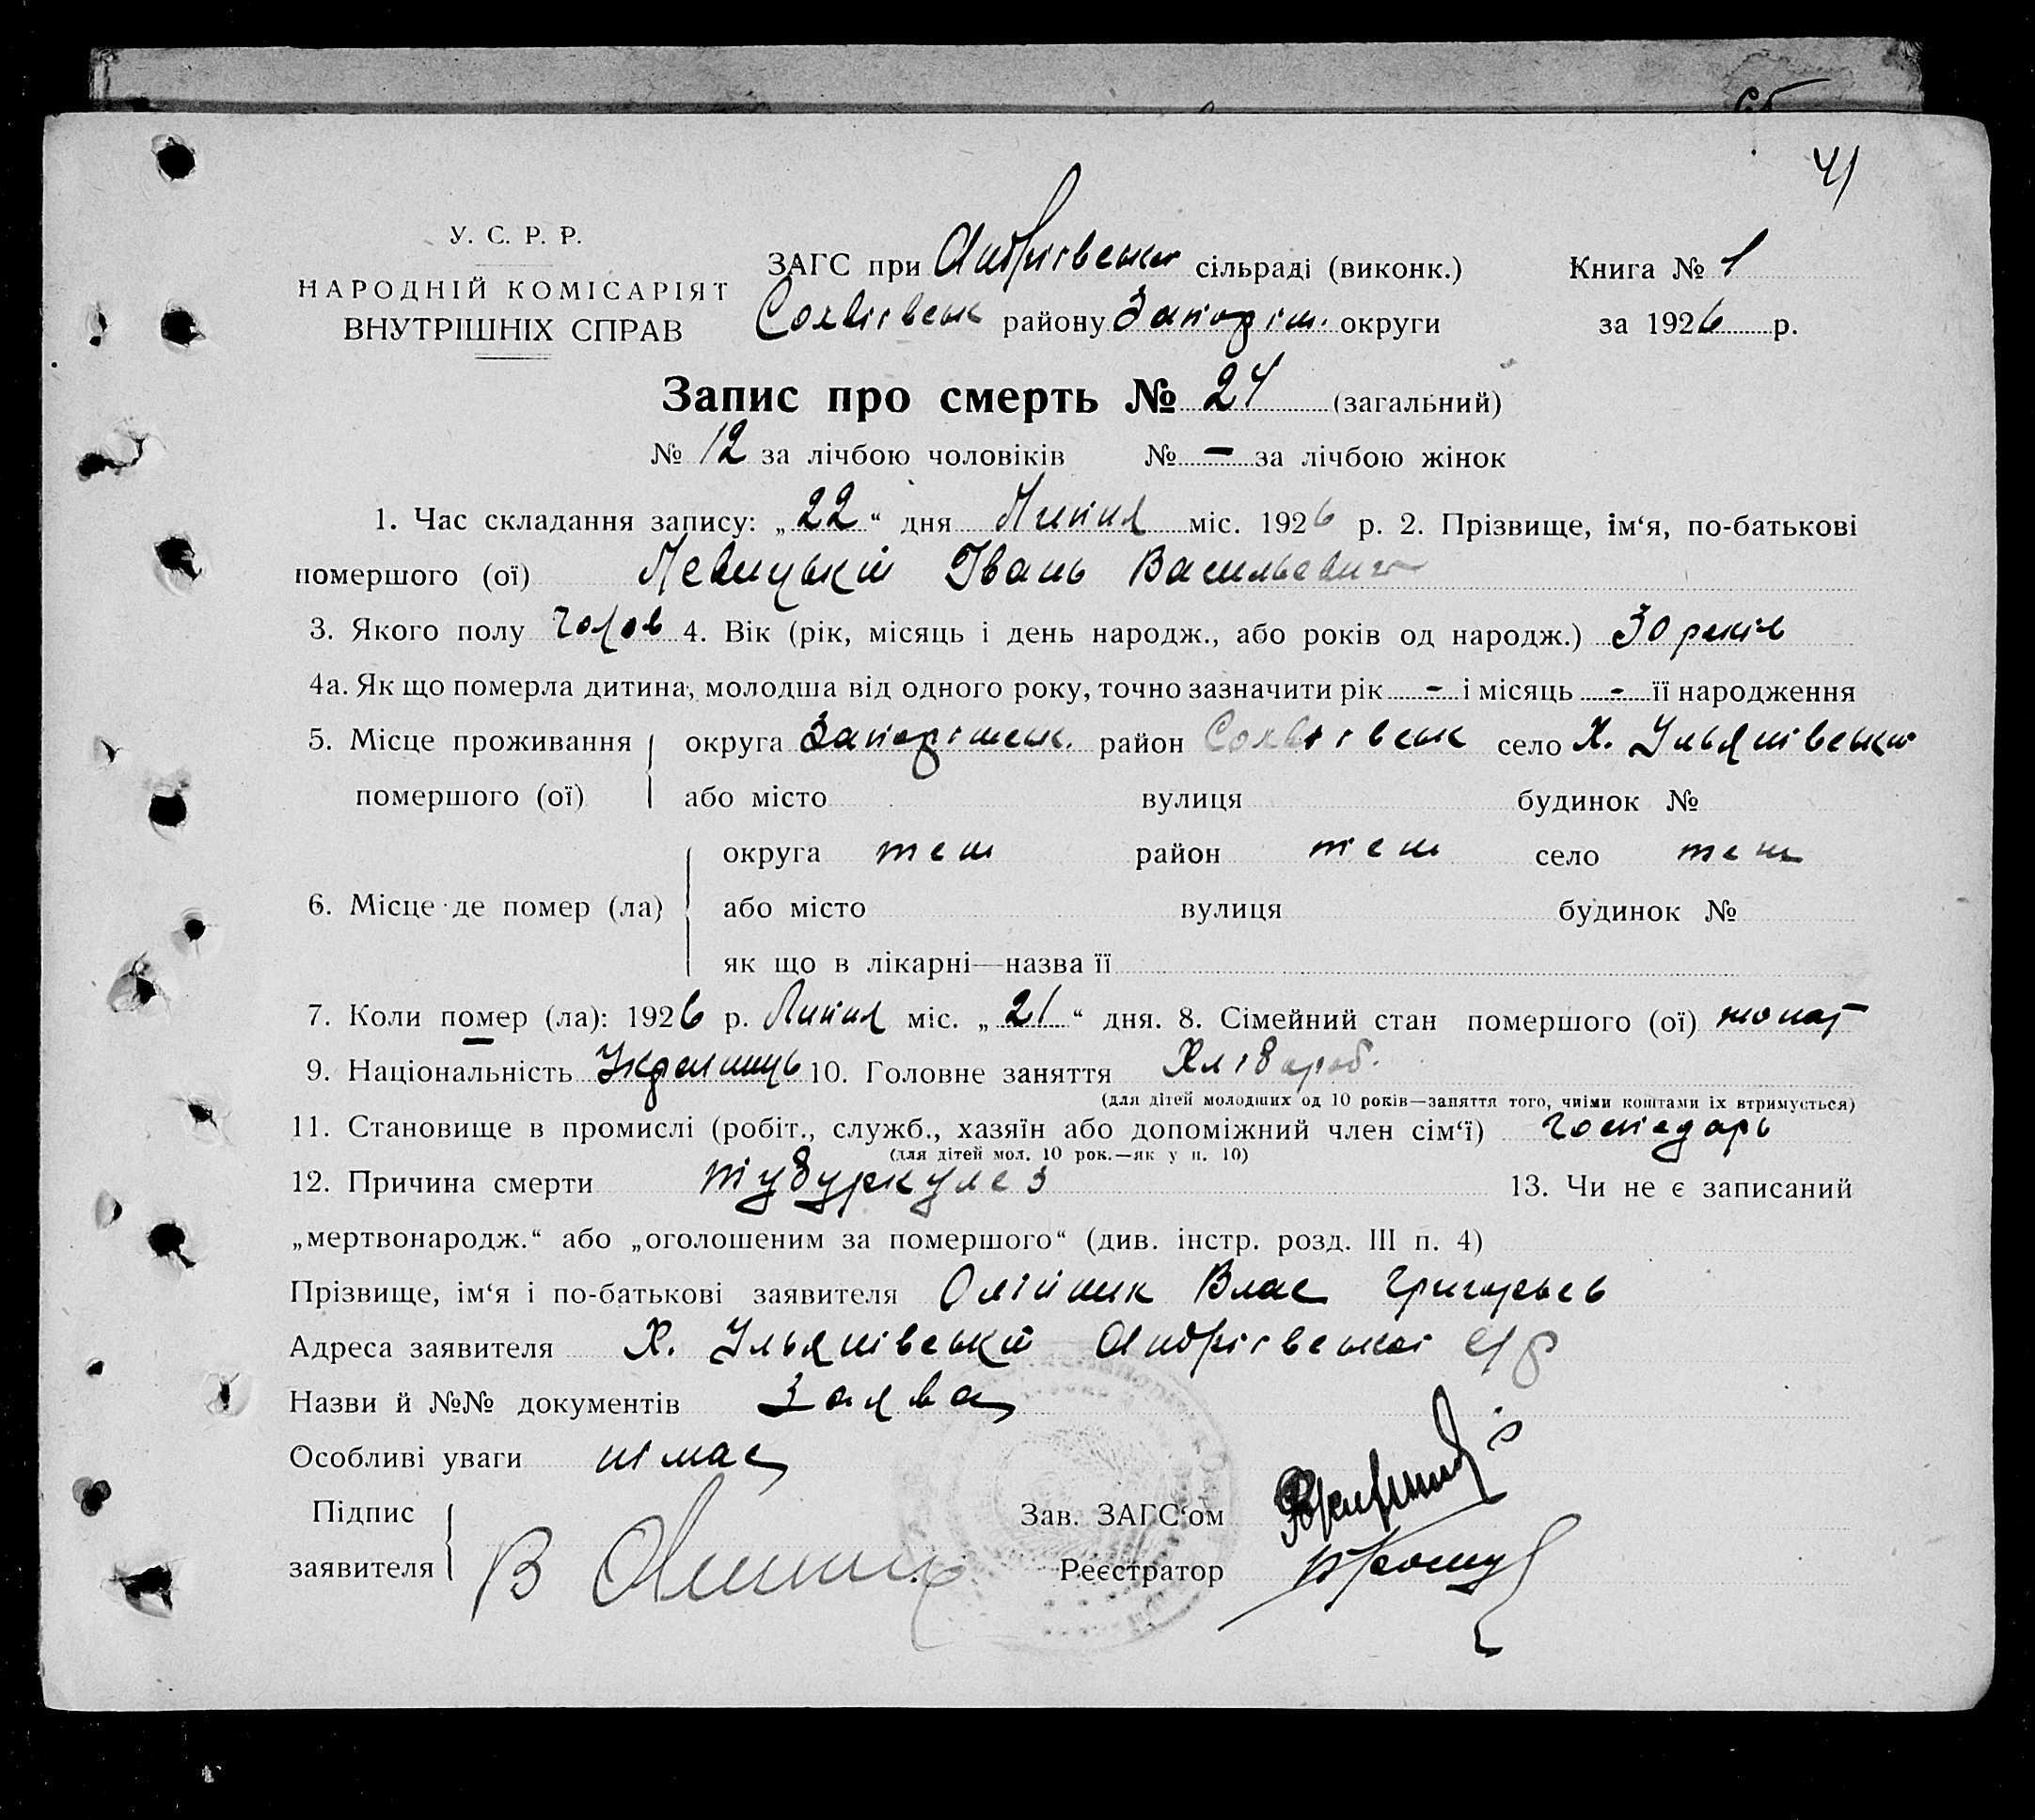 41
У. С. Р. Р.
НАРОДНІЙ КОМІСАРІЯТ
ВНУТРІШНІХ СПРАВ
ЗАГС при Андріївськи сільраді (виконк.)
Софіївськ району Запоріж. округи
Книга № 1
за 1926 р.
Запис про смерть № 24 (загальний)
№ 12 за лічбою чоловіків № - за лічбою жінок
1. Час складання запису: „22“ дня Липня міс. 1926 р. 2. Прізвище, ім‘я, по-батькові
помершого (ої) Левицькій Івань Васильевич
3. Якого полу Чолов 4. Вік (рік, місяць і день народж., або років од народж.) 30 років
4а. Як що померла дитина, молодша від одного року, точно зазначити рік - і місяць - її народження
5. Місце проживання помершого (ої) округа Запоріжськ. район Софіївськ село Х. Ульянівськи
або місто вулиця будинок №
6. Місце де помер (ла) округа теж район теж село теж
або місто вулиця будинок №
як що в лікарні—назва її
7. Коли помер (ла): 1926 р. Липня міс. „21“ дня. 8. Сімейний стан помершого (ої) жонат
9. Національність Украинець 10. Головне заняття Хлібороб.
(для дітей молодших од 10 років—заняття того, чиїми коштами їх втримується)
11. Становище в промислі (робіт., служб., хазяїн або допоміжний член сім‘ї) Господарь
(для дітей мол. 10 рок.—як у п. 10)
12. Причина смерти туберкулез 13. Чи не є записаний
„мертвонародж.“ або „оголошеним за помершого“ (див. інстр. розд. III п. 4)
Прізвище, ім‘я і по-батькові заявителя Олійник Влас Григорьев
Адреса заявителя Х. Ульянівській Андріївської с/р
Назви й №№ документів Заява
Особливі уваги німає
Підпис заявителя В Олійник
Зав. ЗАГС‘ом
Реєстратор